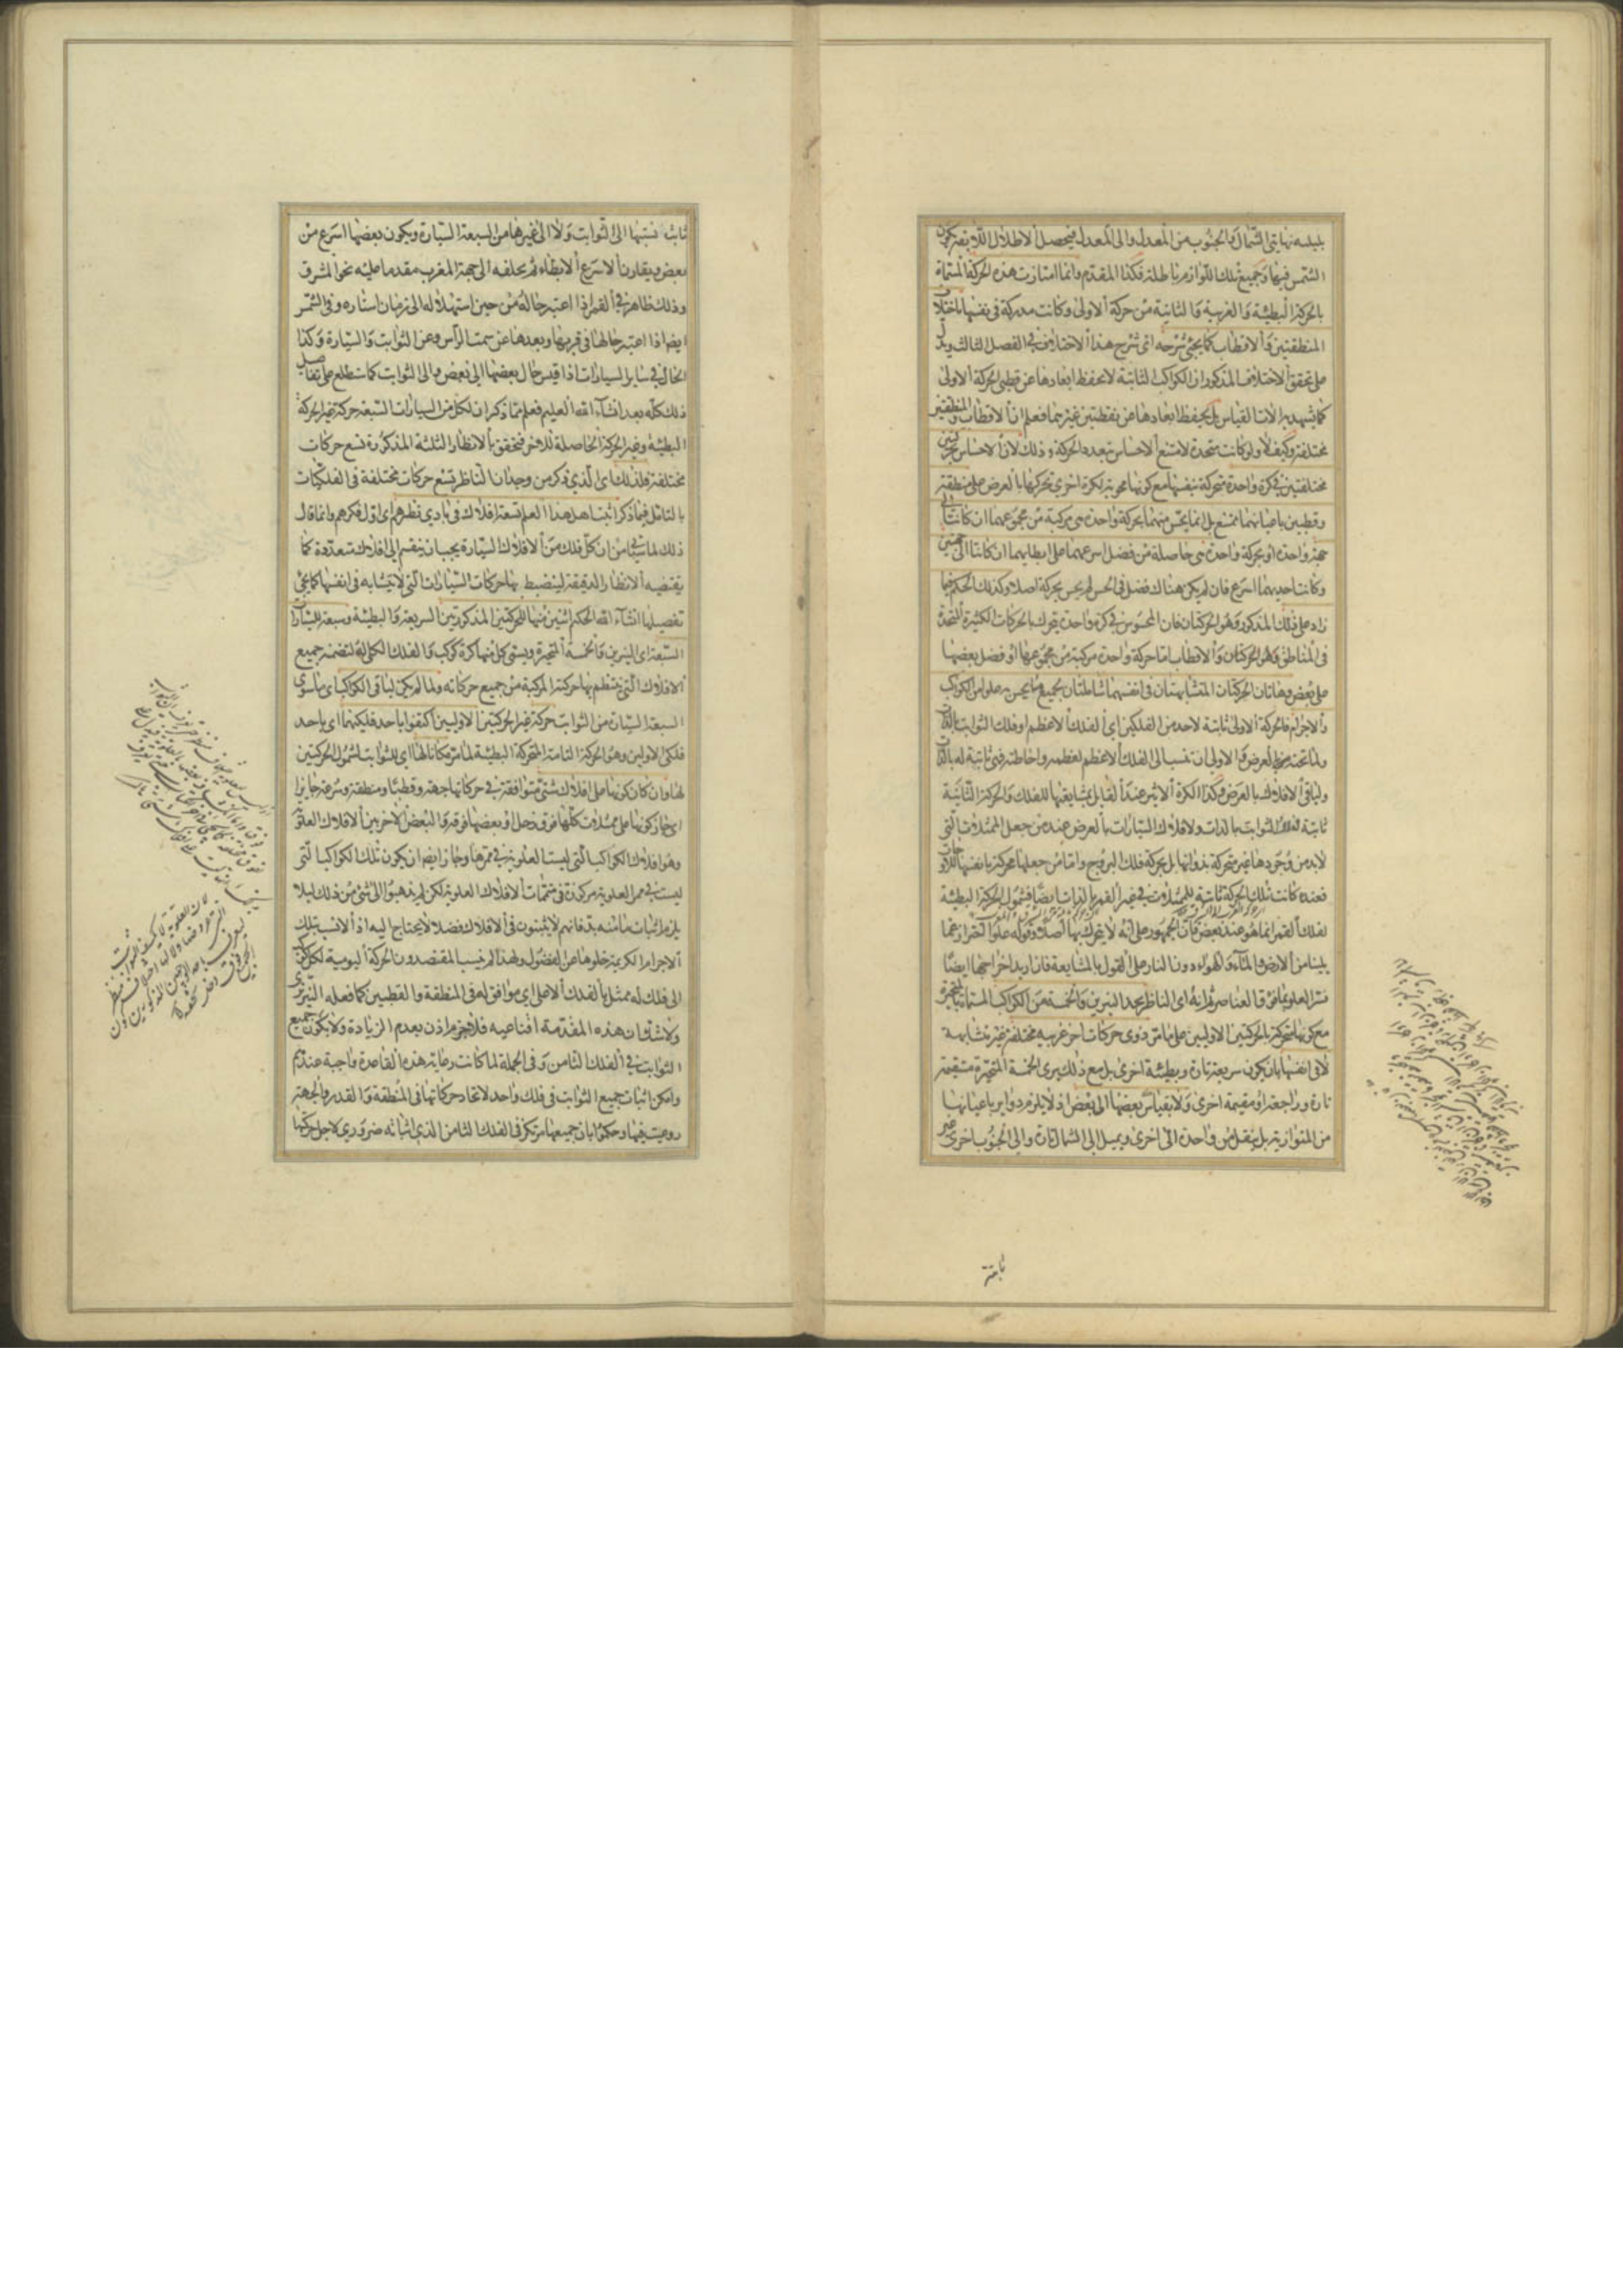 بليله نهايتى الشمال والجنوب من المعدل والى المعدل فيحصل الاطلال اللايقة بكون
الشمس فيها وجميع تلك اللوازم باطلة فكذا المقدم وانما امتازت هذه الحركة المسماة
بالحركة البطيئة والغربية والثانية من حركة الاولى وكانت مدركة فى نفسها باختلاف
المنطقتين والاقطاب كما يجئ شرحه اى شرح هذا الاختلاف فى الفصل الثالث ويدل
على تحقق الاختلاف المذكور ان الكواكب الثابتة لا تحفظ ابعادها عن قطبى الحركة الاولى
كما يشهد به الات القياس بل يحفظ ابعادها عن نقطتين غيرهما فعلم ان الاقطاب والمنطقتين
مختلفة وكيف لا ولو كانت متحدة لامتنع الاحساس بتعدد الحركة وذلك لان الاحساس بحركتين
مختلفتين فى كرة واحدة متحركة بنفسها مع كونها محوية لكرة اخرى تحركها بالعرض على منطقة
وقطبين باعيانهما ممتنع بل انما يحس منهما بحركة واحدة هى مركبة من مجموعهما ان كانتا الى
جهة واحدة او بحركة واحدة هى حاصلة من فضل اسرعهما على ابطايهما ان كانتا الى جهتين
وكانت احديهما اسرع فان لم يكن هناك فضل فى الحس لم يحس بحركة اصلا وكذلك الحكم فيما
زاد على ذلك المذكور وهو الحركتان فان المحسوس فى كرة واحدة يتحرك بالحركات الكثيرة المتحدة
فى المناطق والاقطاب اما حركة واحدة مركبة من مجموعها او فضل بعضها
على بعض وهاتان الحركتان المتشابهتان فى انفسهما شاملتان لجميع ما يحس به علوا من الكواكب
والاجرام فالحركة الاولى ثابتة لاحد من الفلكين اى الفلك الاعظم او فلك الثوابت بالذات
ولما تحته بالعرض والاولى ان تنسب الى الفلك الاعظم لعظمه واحاطته فهى ثابتة له بالذات
ولباقى الافلاك بالعرض وكذا لكرة الاثير عند القايل بمشايعتها للفلك والحركة الثانية
ثابتة لفلك الثوابت بالذات ولافلاك السيارات بالعرض عند من جعل الممثلات التى
لابد من وجودها غير متحركة بذواتها بل بحركة فلك البروج واما من جعلها محركة بانفسها للاوجات
فعنده كانت تلك الحركة ثابتة للممثلات فى غير القمر بالذات ايضا فشمول الحركة البطيئة
لفلك القمر انما هو عند بعض فان الجمهور على انه لا يتحرك بها اصلا وقوله علوا احتراز عما
يلينا من الارض والماء والهواء دون النار على القول بالمشايعة فان اريد اخراجها ايضا
فسر العلو بما فوق العناصر ثم انه اى الناظر يجد النيرين والخمسة من الكواكب المسماة بالمتحيرة
مع كونها متحركة بالحركتين الاوليين على ما مر ذوى حركات اخر غربية مختلفة غير متشابهة
لا فى انفسها بان يكون سريعة تارة وبطيئة اخرى بل مع ذلك يرى الخمسة المتحيرة مستقيمة
تارة وراجعة او مقيمة اخرى ولا بقياس بعضها الى بعض اذ لا يلزم دواير باعيانها
من المتوازية بل ينتقل من واحدة الى اخرى ويميل الى الشمال تارة والى الجنوب اخرى غير
ثابتة
ثابت نسبتها الى الثوابت ولا الى غيرها من السبعة السيارة ويكون بعضها اسرع من
بعض ويقارن الاسرع الابطاء ثم يخلفه الى جهة المغرب مقدما عليه نحو المشرق
وذلك ظاهر فى القمر اذا اعتبر حاله من حين استهلاله الى زمان استتاره وفى الشمس
ايضا اذا اعتبر حالها فى قربها وبعدها عن سمت الراس وعن الثوابت والسيارة وكذا
الحال فى ساير السيارات اذا قيس حال بعضها الى بعض والى الثوابت كما ستطلع على تفاصيل
ذلك كله بعد انشاء الله العليم فعلم مما ذكر ان لكل من السيارات السبعة حركة غير الحركة
البطيئة وغير الحركة الحاصلة للاوج فتحقق بالانظار الثلثة المذكورة تسع حركات
مختلفة فلذلك اى الذى ذكر من وجدان الناظر تسع حركات مختلفة فى الفلكيات
بالتامل فيما ذكر اثبت اهل هذا العلم تسعة افلاك فى بادى نظرهم اى اول فكرهم وانما قال
ذلك لما سيأتى من ان كل فلك من الافلاك السيارة يجب ان ينقسم الى افلاك متعددة كما
يقتضيه الانظار الدقيقة لينضبط بها حركات السيارات التى لا يتشابه فى انفسها كما يجئ
تفصيلها انشاء الله الحكيم اثنين منها للحركتين المذكورتين السريعة والبطيئة وسبعة للسيارات
السبعة اى النيرين والخمسة المتحيرة ويسمى كل منها كرة كوكب والفلك الكلى له لتضمنه جميع
الافلاك التى ينتظم بها حركته المركبة من جميع حركاته ولما لم يكن لباقى الكواكب اى ما سوى
السبعة السيارة من الثوابت حركة غير الحركتين الاوليين اكتفوا باحد فلكيهما اى باحد
فلكى الاوليين وهو الحركة التامة المتحركة البطيئة لما مر مكانا لها اى للثوابت لشمول الحركتين
لها وان كان كونها على افلاك شتى متوافقة فى حركاتها جهة وقطبا ومنطقة وسرعة جايزا
اى جاز كونها على ممثلات كلها فوق زحل او بعضها فوقه والبعض الاخر بين الافلاك العلوية
وهو افلاك الكواكب التى ليست العلوية فى ممرها وجاز ايضا ان يكون تلك الكواكب التى
ليست فى ممر العلوية مركوزة فى متممات الافلاك العلوية لكن لم يذهبوا الى شئ من ذلك ليلا
يلزم اثبات ما منه بد فانهم لا يثبتون فى الافلاك فضلا لا يحتاج اليه اذ الانسب بتلك
الاجرام الكريمة خلوها عن الفضول ولهذا لم ينسب المقتصدون الحركة اليومية لكل كوكب
الى فلك له ممثل بالفلك الاعلى اى موافق له فى المنطقة والقطبين كما فعله النيريزى
ولا شك ان هذه المقدمة اقناعيه فلا جزم اذن بعدم الزيادة ولا بكون جميع
الثوابت فى الفلك الثامن وفى الجملة لما كانت رعاية هذه القاعدة واجبة عندهم
وامكن اثبات جميع الثوابت فى فلك واحد لاتحاد حركاتها فى المنطقة والقدر والجهة
روعيت فيها وحكموا بان جميعها مرتكز فى الفلك الثامن الذى اثباته ضرورى لاجل حركتها